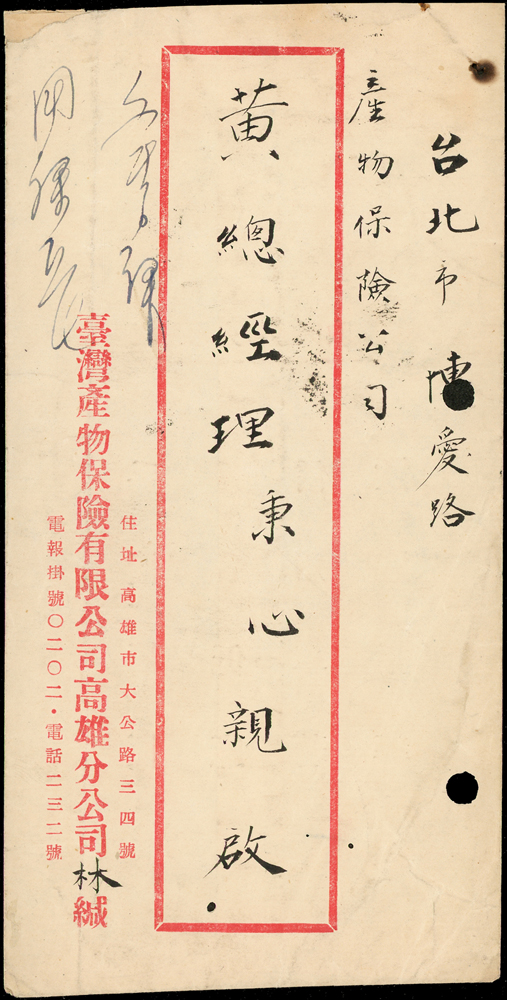 台北市博愛路
產物保險公司
黃總經理秉心親啟
住址 高雄市大公路三四號
臺灣產物保險有限公司高雄分公司林緘
電報掛號〇二〇二・電話二三二號